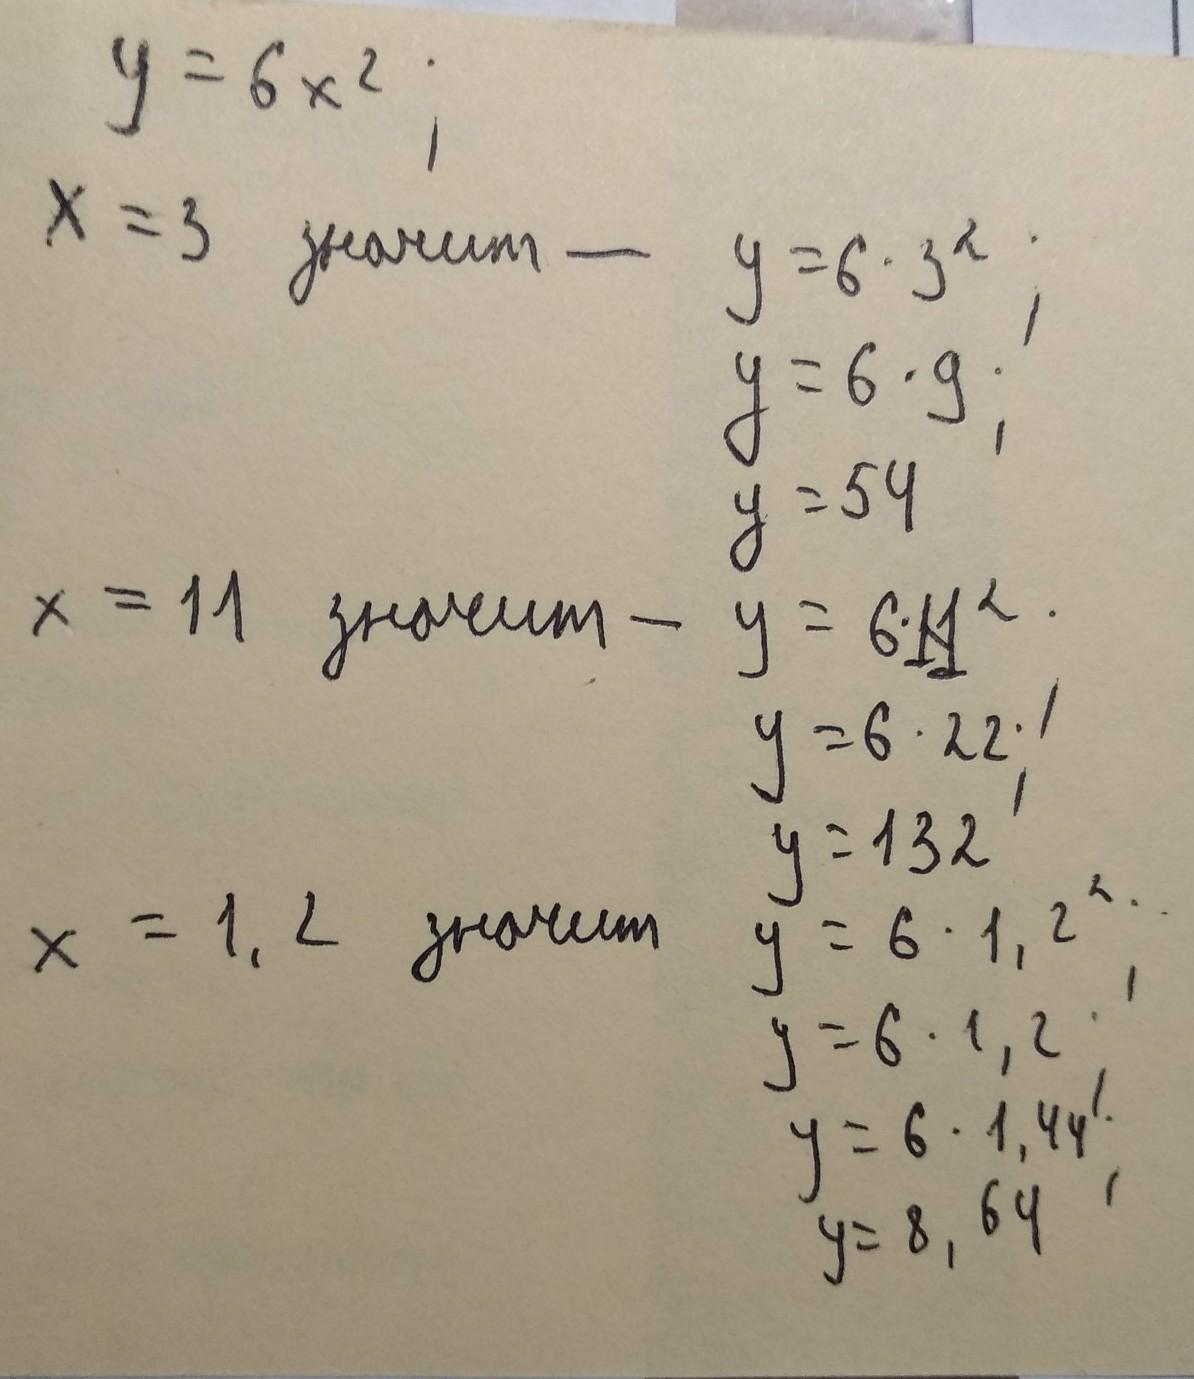 y = 6x² ;
x = 3 значит — y = 6 · 3² ;
y = 6 · 9 ;
y = 54
x = 11 значит — y = 6 · 11² ;
y = 6 · 22 ;
y = 132
x = 1,2 значит y = 6 · 1,2² ;
y = 6 · 1,2 ;
y = 6 · 1,44 ;
y = 8,64